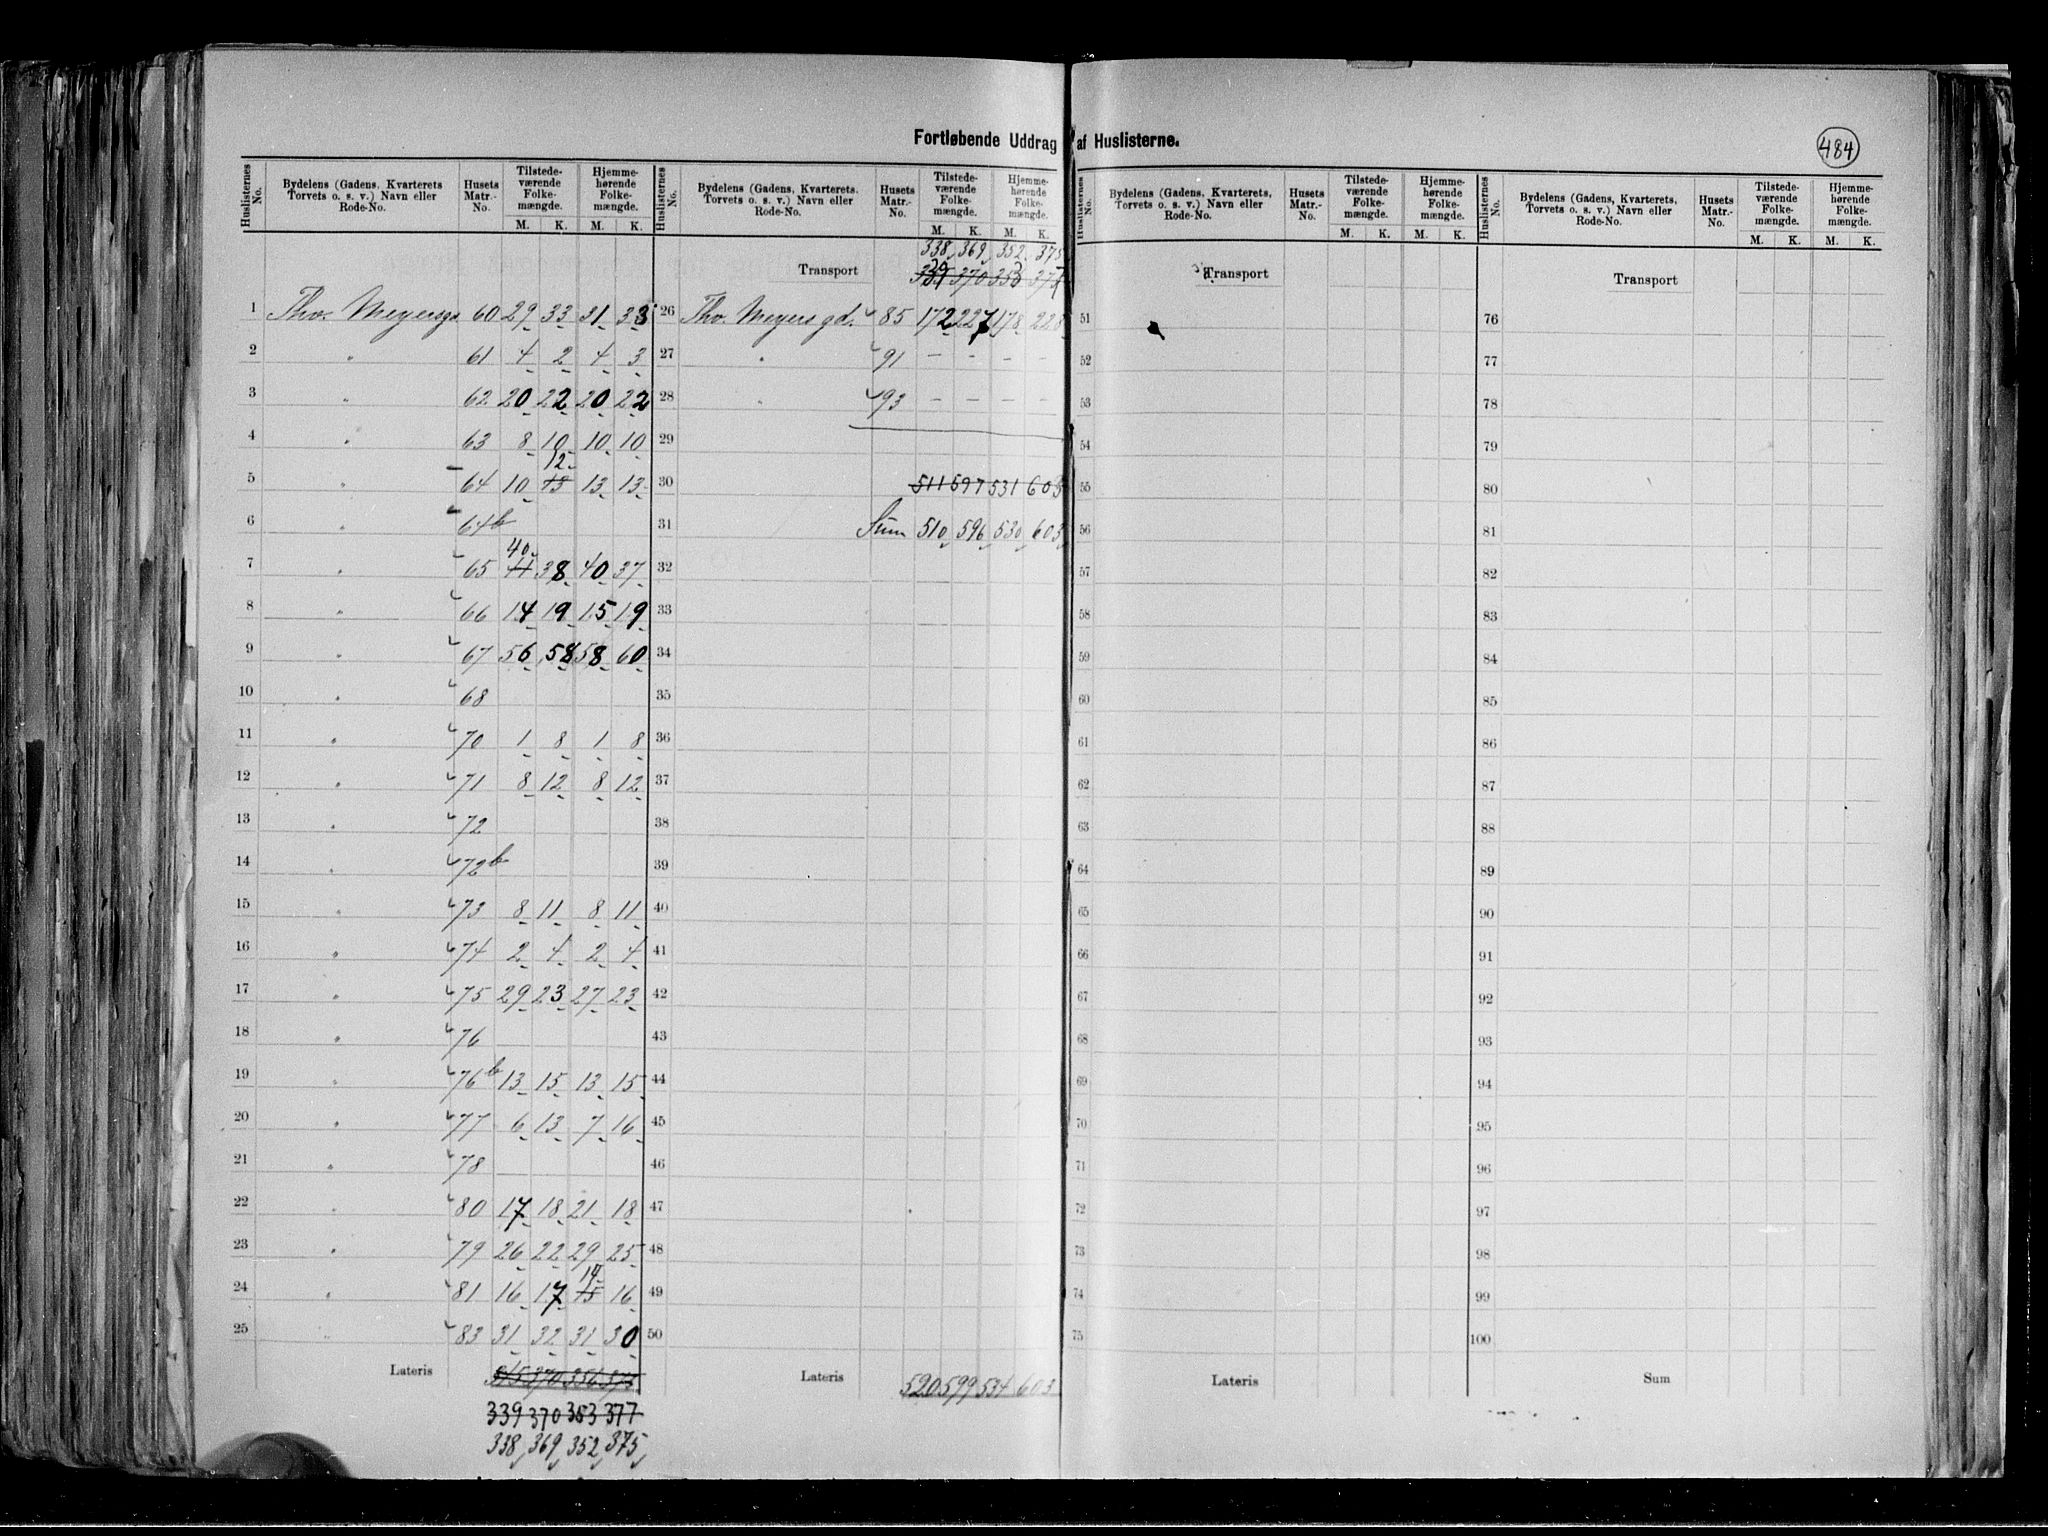 Fortløbende Uddrag af Huslisterne.
484
Huslisternes No. Bydelens (Gadens, Kvarterets Torvets o. s. v.) Navn eller Rode-No. Husets Matr.-No. Tilstedeværende Folkemængde. M. K. Hjemmehørende Folkemængde. M. K.
1 Thv. Meyersgd 60 29 33 31 33
2 " 61 4 2 4 3
3 " 62 20 22 20 22
4 " 63 8 10 10 10
12
5 " 64 10 13 13 13
6 " 64b
40
7 " 65 41 38 40 37
8 " 66 14 19 15 19
9 " 67 56 58 58 60
10 " 68
11 " 70 1 8 1 8
12 " 71 8 12 8 12
13 " 72
14 " 72b
15 " 73 8 11 8 11
16 " 74 2 4 2 4
17 " 75 29 23 27 23
18 " 76
19 " 76b 13 15 13 15
20 " 77 6 13 7 16
21 " 78
22 " 80 17 18 21 18
23 " 79 26 22 29 25
14
24 " 81 16 17 15 16
25 " 83 31 32 31 30
Lateris 370 356
339 370 353 377
338 369 352 375
Huslisternes No. Bydelens (Gadens, Kvarterets. Torvets o. s. v.) Navn eller Rode-No. Husets Matr.-No. Tilstedeværende Folkemængde. M. K. Hjemmehørende Folkemængde. M. K.
338 369 352 375
Transport 370
26 Thv. Meyers gd. 85 172 227 178 228
27 " 91 – – – –
28 " 93 – – – –
29
30 511 597 531 603
31 Sum 510 596 530 603
32
33
34
35
36
37
38
39
40
41
42
43
44
45
46
47
48
49
50
Lateris 520 599 534 603
Huslisternes No. Bydelens (Gadens, Kvarterets, Torvets o. s. v.) Navn eller Rode-No. Husets Matr.-No. Tilstedeværende Folkemængde. M. K. Hjemmehørende Folkemængde. M. K.
Transport
51
52
53
54
55
56
57
58
59
60
61
62
63
64
65
66
67
68
69
70
71
72
73
74
75
Lateris
Huslisternes No. Bydelens (Gadens, Kvarterets, Torvets o. s. v.) Navn eller Rode-No. Husets Matr.-No. Tilstedeværende Folkemængde. M. K. Hjemmehørende Folkemængde. M. K.
Transport
76
77
78
79
80
81
82
83
84
85
86
87
88
89
90
91
92
93
94
95
96
97
98
99
100
Sum